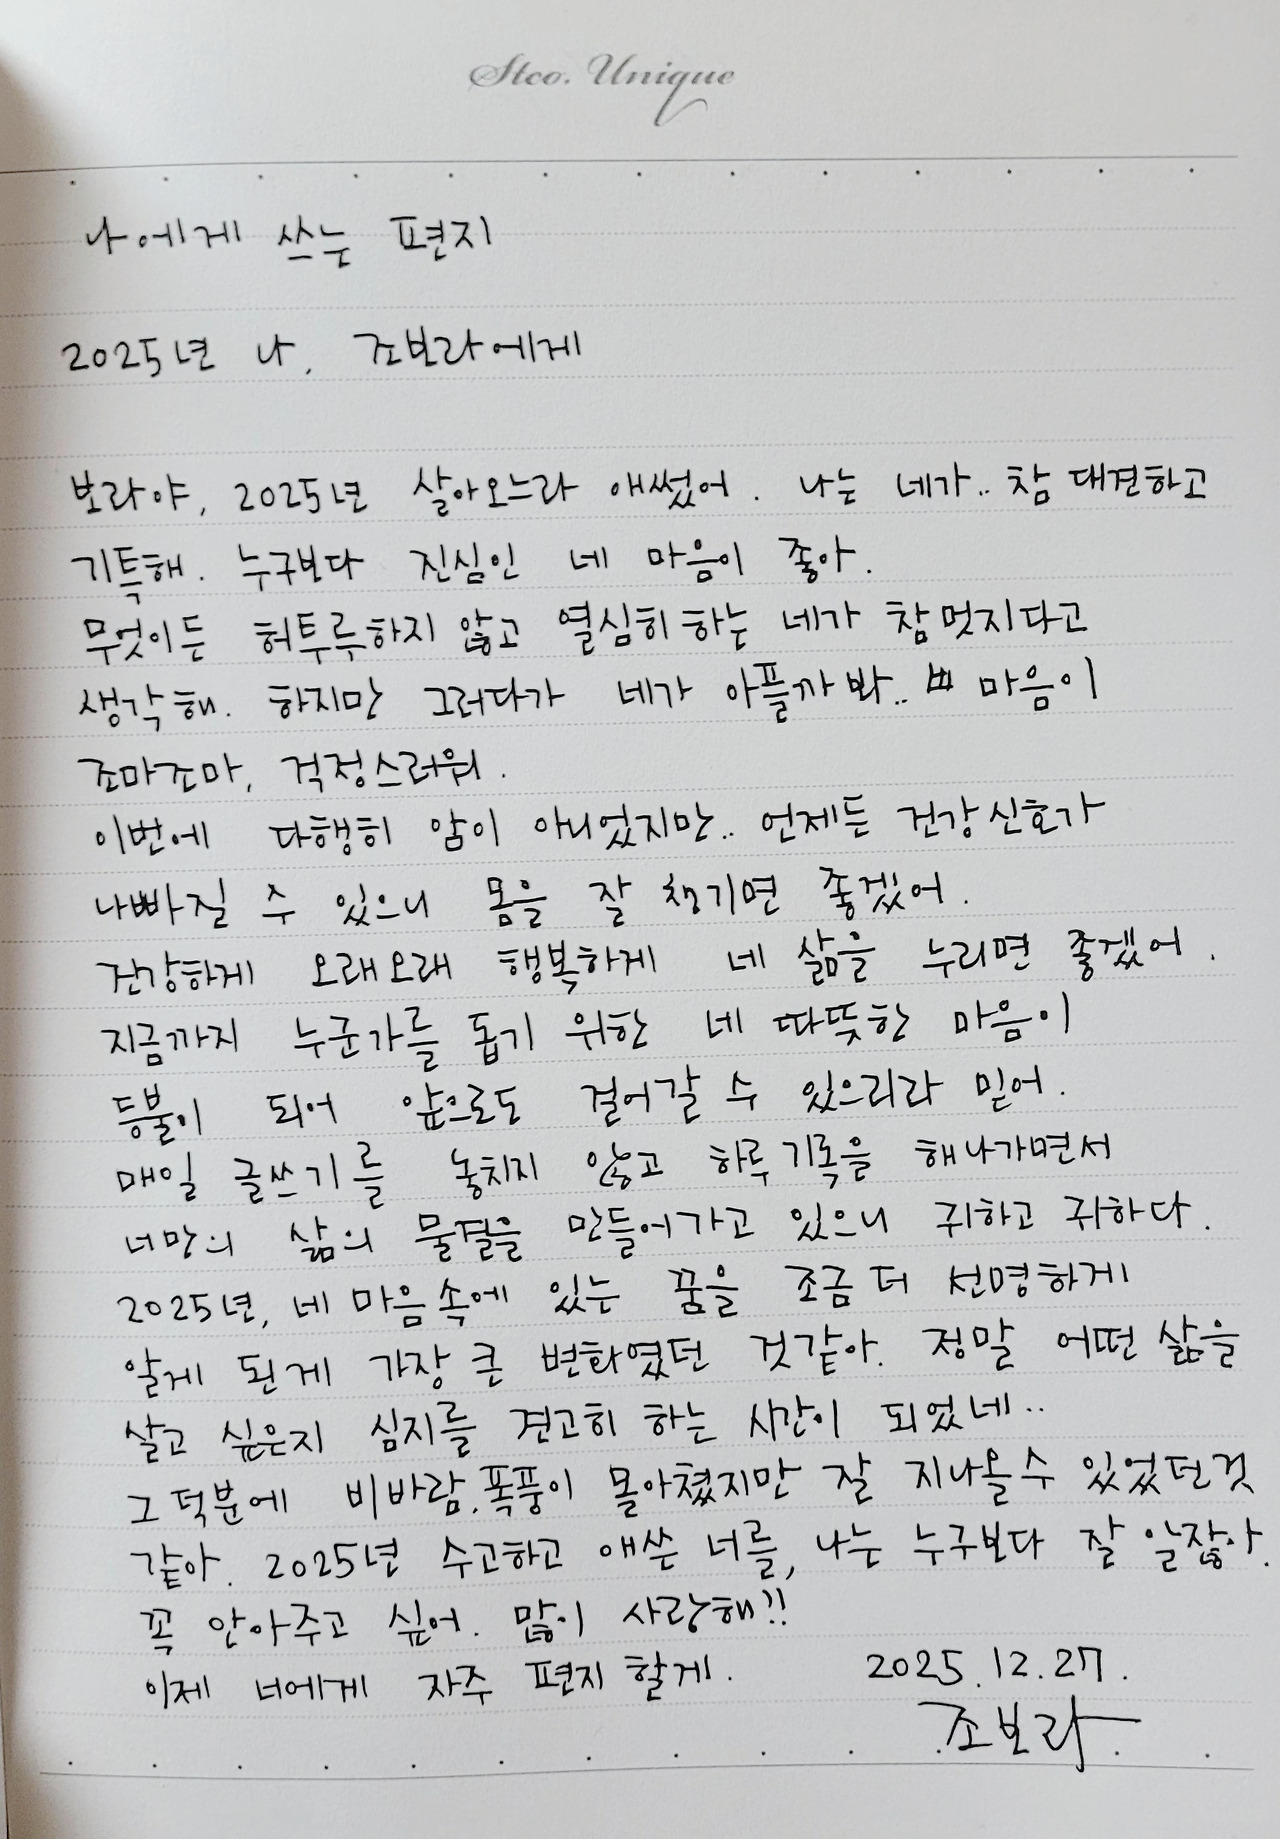 Stco. Unique
나에게 쓰는 편지
2025년 나, 조보라에게
보라야, 2025년 살아오느라 애썼어. 나는 네가.. 참 대견하고
기특해. 누구보다 진심인 네 마음이 좋아.
무엇이든 허투루하지 않고 열심히 하는 네가 참 멋지다고
생각해. 하지만 그러다가 네가 아플까봐.. 마음이
조마조마, 걱정스러워.
이번에 다행히 암이 아니었지만.. 언제든 건강신호가
나빠질 수 있으니 몸을 잘 챙기면 좋겠어.
건강하게 오래오래 행복하게 네 삶을 누리면 좋겠어.
지금까지 누군가를 돕기 위한 네 따뜻한 마음이
등불이 되어 앞으로도 걸어갈 수 있으리라 믿어.
매일 글쓰기를 놓치지 않고 하루 기록을 해나가면서
너만의 삶의 물결을 만들어가고 있으니 귀하고 귀하다.
2025년, 네 마음속에 있는 꿈을 조금 더 선명하게
알게 된게 가장 큰 변화였던 것같아. 정말 어떤 삶을
살고 싶은지 심지를 견고히 하는 시간이 되었네..
그 덕분에 비바람, 폭풍이 몰아쳤지만 잘 지나올 수 있었던것
같아. 2025년 수고하고 애쓴 너를, 나는 누구보다 잘 알잖아.
꼭 안아주고 싶어. 많이 사랑해!!
이제 너에게 자주 편지 할게. 2025.12.27.
조보라